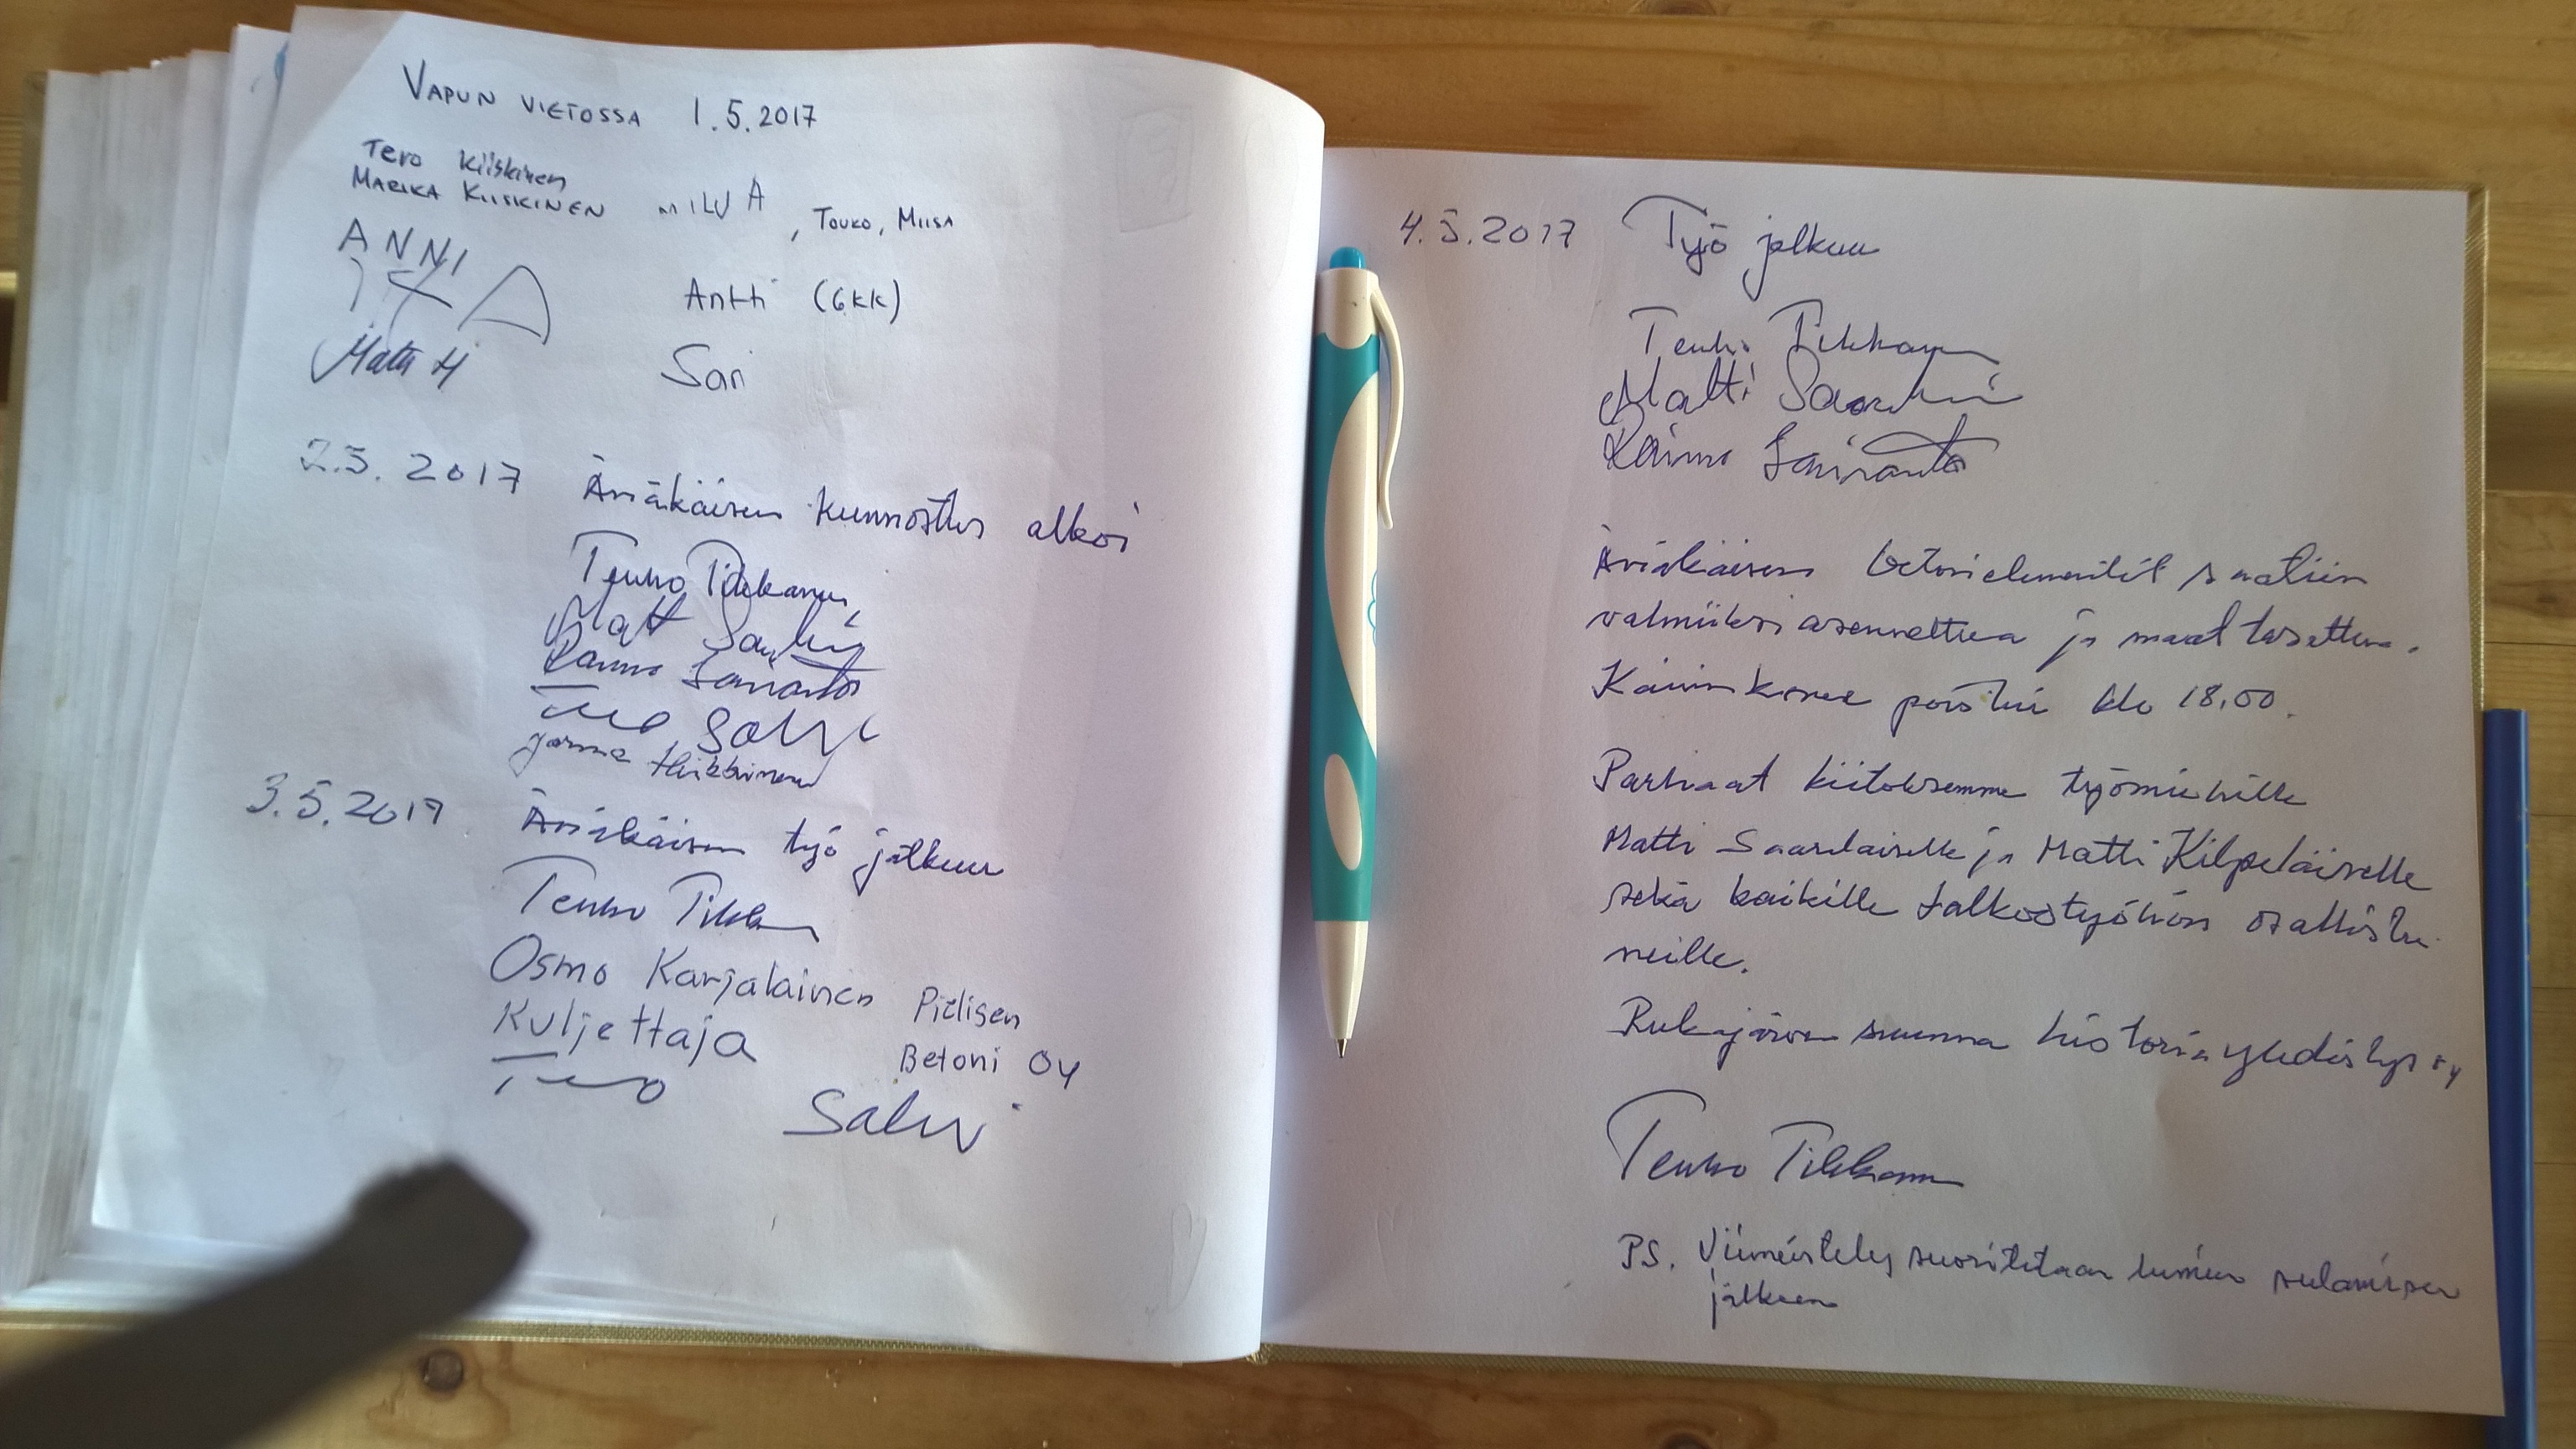 VAPUN VIETOSSA 1.5.2017
Tero Kiiskinen
MARIKA KIISKINEN MILJA, TOUKO, MIISA
ANNI
Antti (6kk)
Matti H
Sari
2.5.2017 Änäkäisen kunnostus alkoi
Teuvo Tikkanen
Raimo
Jorma Heikkinen
3.5.2017 Änäkäisen työ jatkuu
Teuvo Tikkanen
Osmo Karjalainen Pielisen
Kuljettaja Betoni Oy
4.5.2017 Työ jatkuu
Teuvo Tikkanen
Matti
Raimo
Änäkäisen betonielementit saatiin
valmiiksi asennettua ja maat tasattua.
Kaivinkone poistui klo 18.00.
Parhaat kiitoksemme työmiehille
Matti Saarelaiselle ja Matti Kilpeläiselle
sekä kaikille talkootyöhön osallistu-
neille.
Rukajärven suunnan historiayhdistys ry
Teuvo Tikkanen
PS. Viimeistely suoritetaan lumien sulamisen
jälkeen